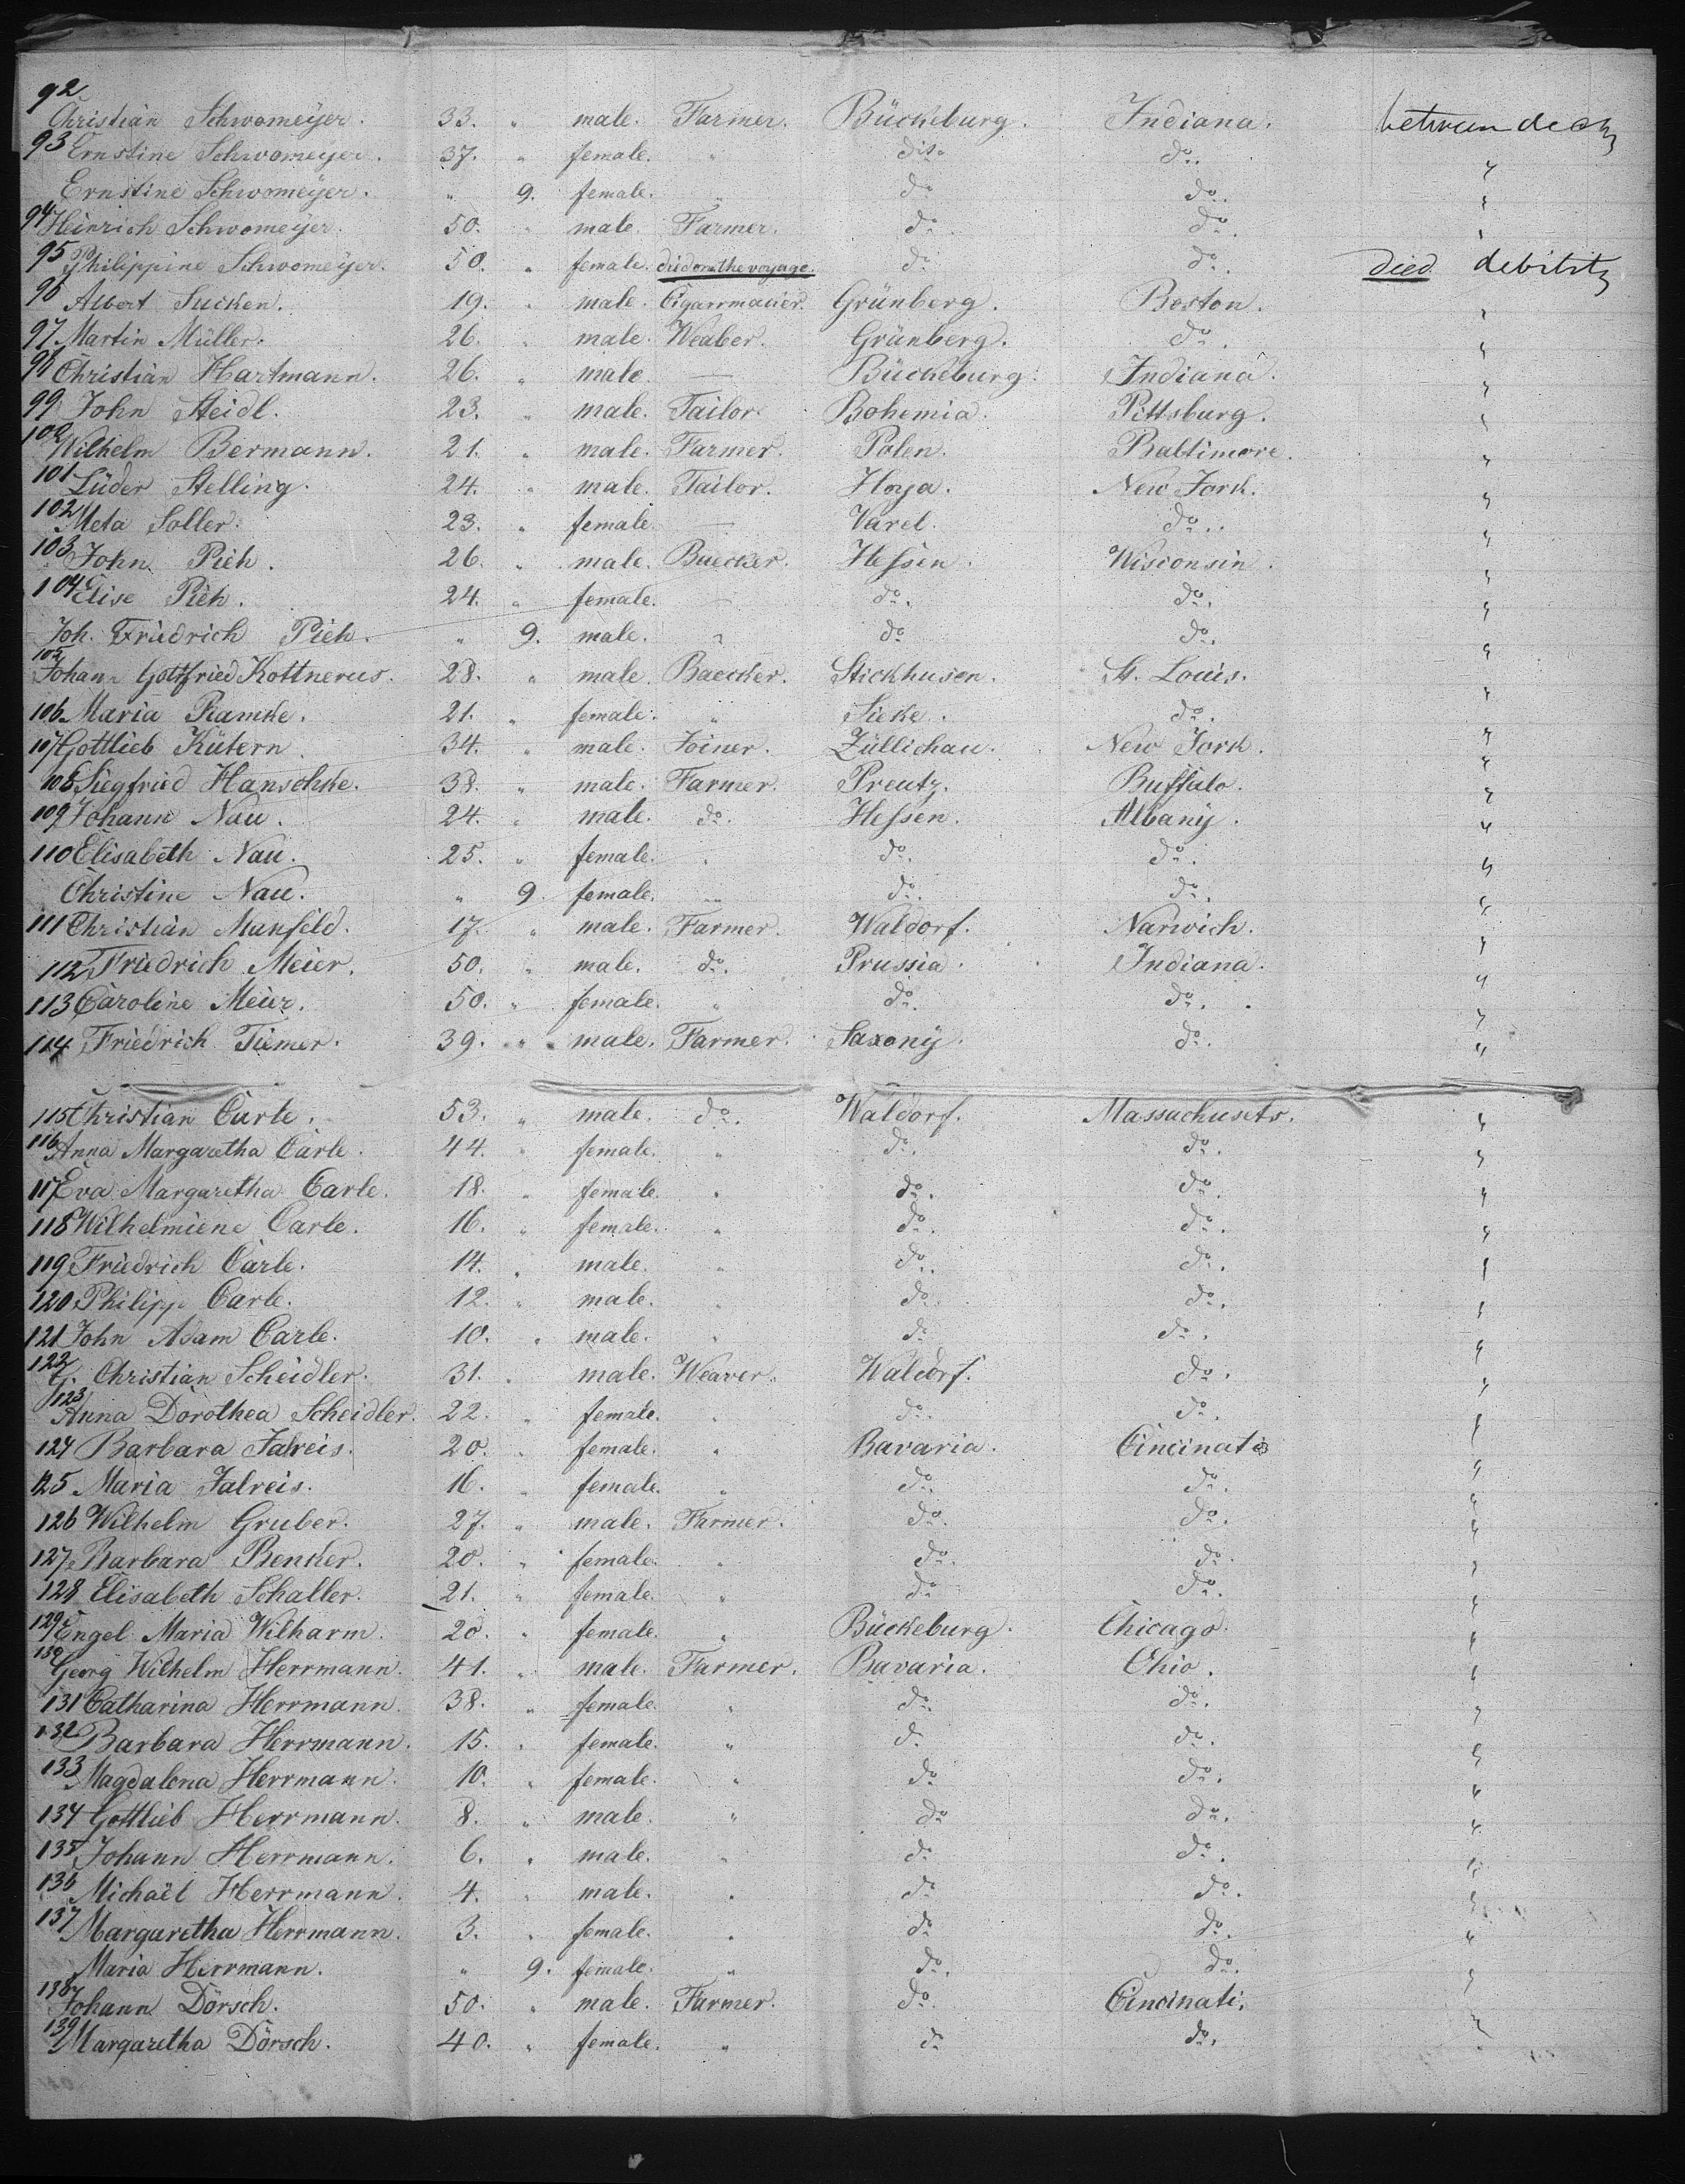 92 Christian Schwomeyer. 33. " male. Farmer. Bückeburg. Indiana. between deck
93 Ernstine Schwomeyer. 37. " female. " dito do. "
Ernstine Schwomeyer. " 9. female. " do do. "
94 Heinrich Schwomeyer. 50. " male. Farmer. do. do. "
95 Philippine Schwomeyer. 50. " female. died on the voyage. do. do. died debility
96 Albert Sucken. 19. " male. Cigarrmacier. Grünberg. Boston. "
97 Martin Müller. 26. " male. Weaber. Grünberg. do. "
98 Christian Hartmann. 26. " male. — Bückeburg. Indiana. "
99 John Heidl. 23. " male. Tailor. Bohemia. Pittsburg. "
100 Wilhelm Bermann. 21. " male. Farmer. Polen. Baltimore. "
101 Lüder Stelling. 24. " male. Tailor. Hoya. New York. "
102 Meta Soller. 23. " female. — Varel. do. "
103 John Pieh. 26. " male. Buecker. Hessen. Wisconsin. "
104 Elise Pieh. 24. " female. — do. do. "
Joh. Friedrich Pieh. " 9. male. " do do. "
105 Johann Gottfried Kottnerus. 28. " male. Baecker. Stickhusen. St. Louis. "
106 Maria Ramke. 21. " female. " Sieke. do. "
107 Gottlieb Kütern. 34. " male. Joiner. Züllichau. New York. "
108 Siegfried Hanschke. 38. " male. Farmer. Preutz. Buffalo. "
109 Johann Nau. 24. " male. do. Hessen. Albany. "
110 Elisabeth Nau. 25. " female. " do. do. "
Christine Nau. " 9. female. " do. do. "
111 Christian Manfeld. 17. " male. Farmer. Waldorf. Narwich. "
112 Friedrich Meier. 50. " male. do. Prussia. Indiana. "
113 Caroline Meier. 50. " female. " do. do. "
114 Friedrich Tiemer. 39. " male. Farmer. Saxony. do. "
115 Christian Carle. 53. " male. do. Waldorf. Massachusets. "
116 Anna Margaretha Carle. 44. " female. " do. do. "
117 Eva Margaretha Carle. 18. " female. " do. do. "
118 Wilhelmiene Carle. 16. " female. " do. do. "
119 Friedrich Carle. 14. " male. " do. do. "
120 Philipp Carle. 12. " male. " do. do. "
121 John Adam Carle. 10. " male. " do do. "
122 G. Christian Scheidler. 31. " male. Weaver. Waldorf. do. "
123 Anna Dorothea Scheidler. 22. " female. " do. do. "
124 Barbara Jalreis. 20. " female. " Bavaria. Cincinati "
125 Maria Jalreis. 16. " female. " do. do. "
126 Wilhelm Gruber. 27. " male. Farmer. do. do. "
127 Barbara Benker. 20. " female. " do. do. "
128 Elisabeth Schaller. 21. " female. " do do. "
129 Engel Maria Wilharm. 20. " female. " Bückeburg. Chicago. "
130 Georg Wilhelm Herrmann. 41. " male. Farmer. Bavaria. Ohio. "
131 Catharina Herrmann. 38. " female. " do. do. "
132 Barbara Herrmann. 15. " female. " do. do. "
133 Magdalena Herrmann. 10. " female. " do do. "
134 Gottlieb Herrmann. 8. " male. " do do. "
135 Johann Herrmann. 6. " male. " do do. "
136 Michaël Herrmann. 4. " male. " do do. "
137 Margaretha Herrmann. 3. " female. " do do. "
Maria Herrmann. " 9. female. " do. do. "
138 Johann Dörsch. 50. " male. Farmer. do. Cincinati. "
139 Margaretha Dörsch. 40. " female. " do do. "